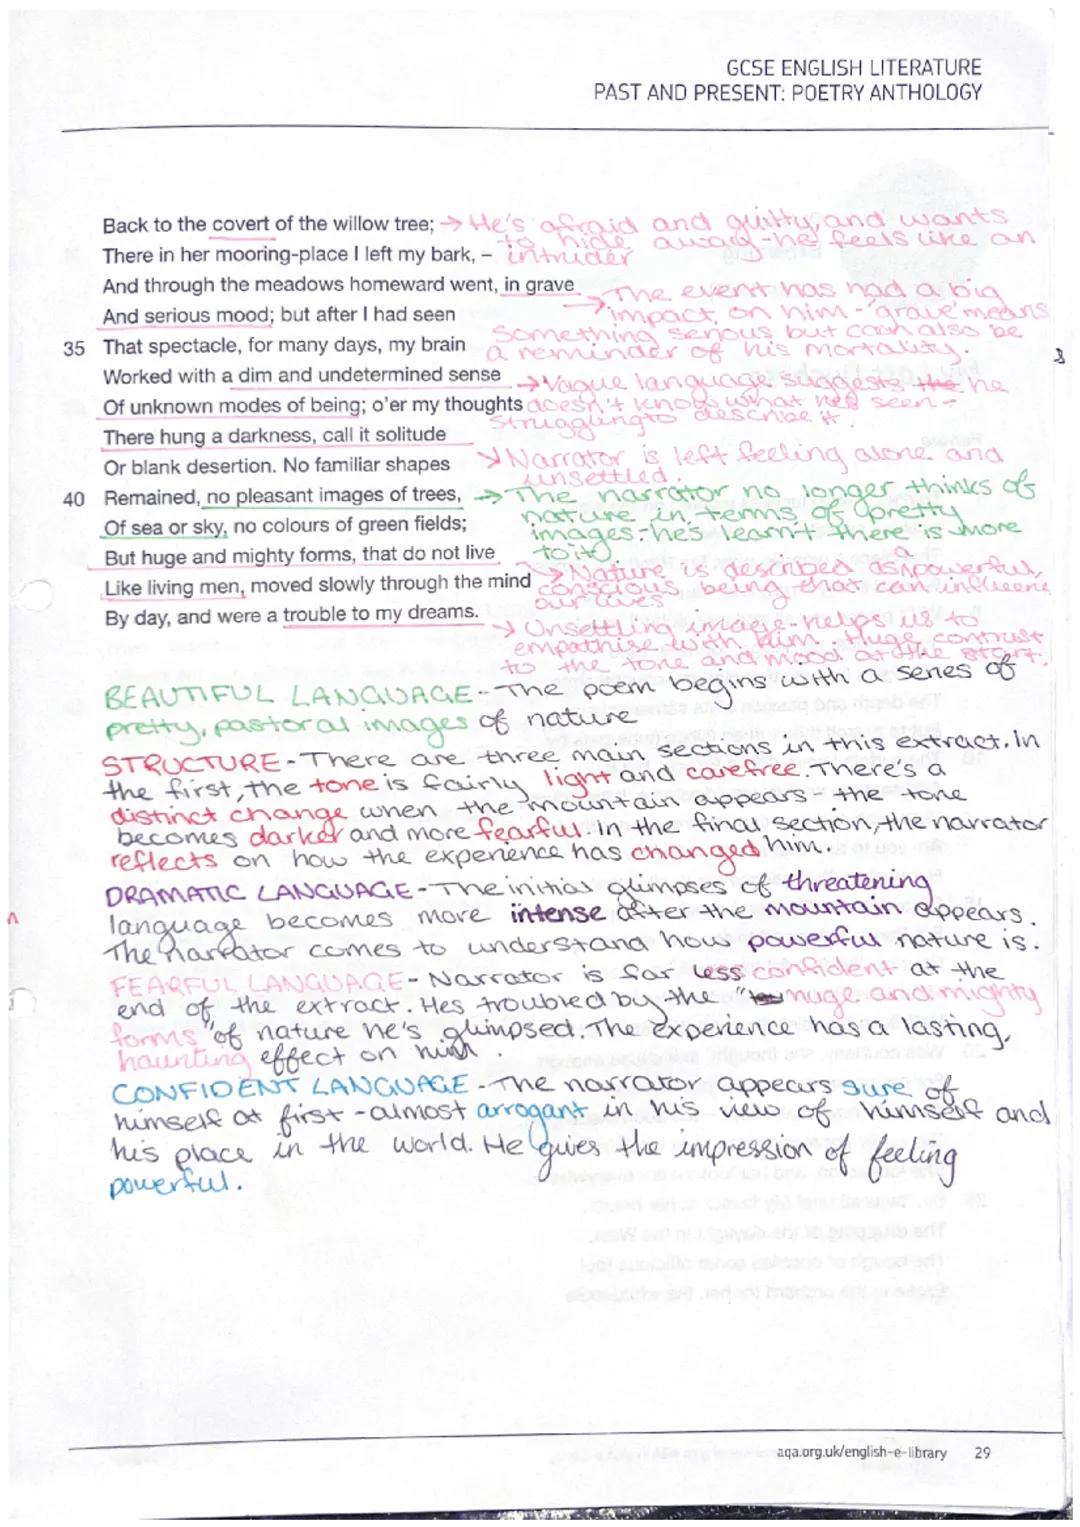 GCSE ENGLISH LITERATURE
PAST AND PRESENT: POETRY ANTHOLOGY
Back to the covert of the willow tree; → He's afraid and guilty, and wants
to hide away - he feels like an
There in her mooring-place I left my bark, – intruder
And through the meadows homeward went, in grave
→ The event has had a big
And serious mood; but after I had seen
impact on him - 'grave' means
something serious but can also be
35 That spectacle, for many days, my brain
a reminder of his mortality.
Worked with a dim and undetermined sense
→ Vague language suggests the he
Of unknown modes of being; o'er my thoughts doesn't know what he's seen -
struggling to describe it.
There hung a darkness, call it solitude
→ Narrator is left feeling alone and
Or blank desertion. No familiar shapes
unsettled.
40 Remained, no pleasant images of trees, → The narrator no longer thinks of
nature in terms of pretty
Of sea or sky, no colours of green fields;
images - he's learnt there is more
But huge and mighty forms, that do not live
to it.
→ Nature is described as a powerful,
Like living men, moved slowly through the mind
conscious being that can influence
our lives
By day, and were a trouble to my dreams.
→ Unsettling image - helps us to
empathise with him. Huge contrast
to the tone and mood at the start.
BEAUTIFUL LANGUAGE - The poem begins with a series of
pretty, pastoral images of nature
STRUCTURE - There are three main sections in this extract. In
the first, the tone is fairly light and carefree. There's a
distinct change when the mountain appears - the tone
becomes darker and more fearful. In the final section, the narrator
reflects on how the experience has changed him.
DRAMATIC LANGUAGE - The initial glimpses of threatening
language becomes more intense after the mountain appears.
The narrator comes to understand how powerful nature is.
FEARFUL LANGUAGE - Narrator is far less confident at the
end of the extract. Hes troubled by the "huge and mighty
forms" of nature he's glimpsed. The experience has a lasting,
haunting effect on him.
CONFIDENT LANGUAGE - The narrator appears sure of
himself at first - almost arrogant in his view of himself and
his place in the world. He gives the impression of feeling
powerful.
aqa.org.uk/english-e-library 29